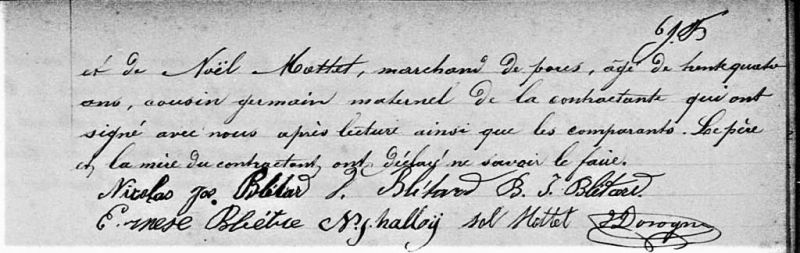 et de Noël Mottet, marchand de porcs, âgé de trente quatre
ans, cousin germain maternel de la contractante qui ont
signé avec nous après lecture ainsi que les comparants. Le père
et la mère du contractant ont déclaré ne savoir le faire.
Nicolas Jos Blétard J. Blétard B. J. Blétard
E. nese N. J. halloÿ sol Mottet Dorogne